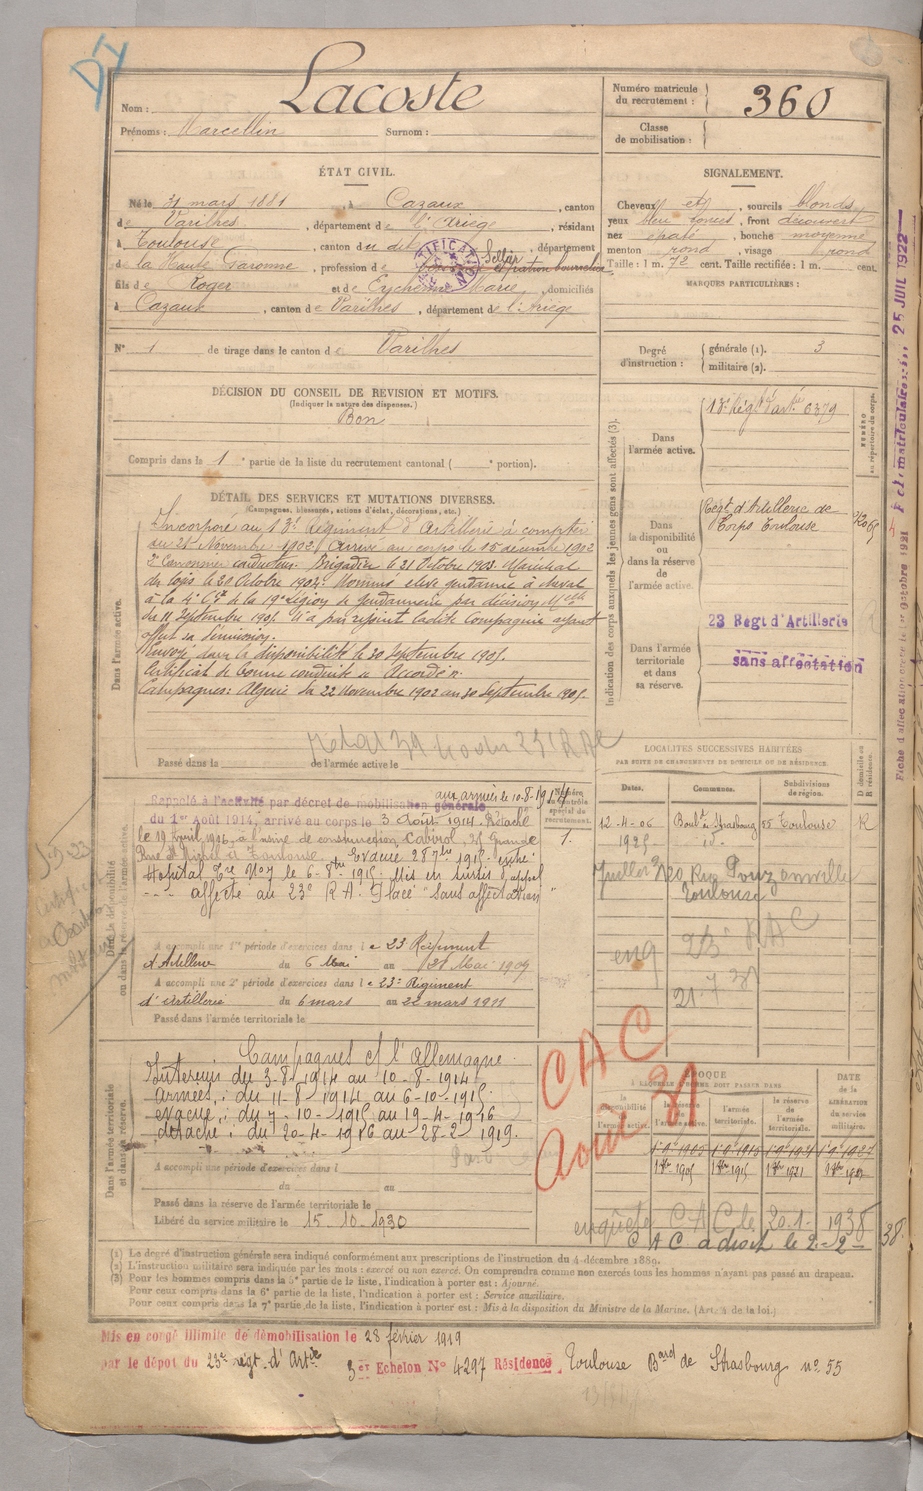 Nom : Lacoste
Prénoms : Marcellin Surnom :
Numéro matricule du recrutement : 360
Classe de mobilisation :
ÉTAT CIVIL.
Né le 31 mars 1881, à Cazaux, canton
de Varilhes, département de l'Ariège, résidant
à Toulouse, canton du dit, département
de la Haute Garonne, profession de Sellier
fils de Roger et de Marie, domiciliés
à Cazaux, canton de Varilhes, département de l'Ariège
N° 1 de tirage dans le canton de Varilhes
SIGNALEMENT.
Cheveux et sourcils blonds
yeux bleu foncés, front découvert
nez épaté, bouche moyenne
menton rond, visage rond
Taille : 1 m. 72 cent. Taille rectifiée : 1 m. cent.
MARQUES PARTICULIÈRES :
Degré d'instruction : générale (1). 3
militaire (2).
DÉCISION DU CONSEIL DE REVISION ET MOTIFS.
(Indiquer la nature des dispenses.)
Bon
Compris dans la 1e partie de la liste du recrutement cantonal ( e portion).
DÉTAIL DES SERVICES ET MUTATIONS DIVERSES.
(Campagnes, blessures, actions d'éclat, décorations, etc.)
Dans l'armée active.
Incorporé au 13e Régiment d'Artillerie à compter
du 21 Novembre 1902. Arrivé au corps le 15 décembre 1902
2e Canonnier conducteur. Brigadier le 21 Octobre 1903. Maréchal
des logis le 20 Octobre 1904. Nommé élève gendarme à cheval
à la 4e Cie de la 19e Légion de Gendarmerie par décision Mlle
du 11 Septembre 1905. N'a pas rejoint ladite Compagnie ayant
offert sa démission.
Envoyé dans la disponibilité le 30 septembre 1905.
Certificat de bonne conduite "Accordé".
Campagnes : Algérie du 22 Novembre 1902 au 30 Septembre 1905.
Passé dans la de l'armée active le
Indication des corps auxquels les jeunes gens sont affectés (3).
Dans l'armée active.
13e Régt d'artie 6379
NUMÉRO au répertoire du corps.
Dans la disponibilité ou dans la réserve de l'armée active.
Régt d'Artillerie de
Corps Toulouse
23 Régt d'Artillerie
Dans l'armée territoriale et dans sa réserve.
sans affectation
25 JUIL 1922
LOCALITÉS SUCCESSIVES HABITÉES
PAR SUITE DE CHANGEMENTS DE DOMICILE OU DE RÉSIDENCE.
Dates. Communes. Subdivisions de région. D domicile ou R résidence.
12-4-06 Boult de Strasbourg 55 Toulouse R
1925 id.
20 Rue
Toulouse
enq 23e RAC
CAC
Août 31
Dans la disponibilité ou dans la réserve de l'armée active.
aux armées le 10-8-1914
Rappelé à l'activité par décret de mobilisation générale
du 1er Août 1914, arrivé au corps le 3 Août 1914. Détaché
le 19 Avril 1916, à l'usine de construction Cabirol, 25 Grande
Rue St Michel à Toulouse. Evacué 28 7bre 1915. entré
Hôpital Cre N°7 le 6-8bre 1915. Mis en sursis d'appel
affecté au 23e R.A. Placé "Sans affectation"
Numéro au contrôle spécial du recrutement.
1.
A accompli une 1re période d'exercices dans le 23 Régiment
d'Artillerie du 6 Mai au 21 Mai 1909
A accompli une 2e période d'exercices dans le 23e Régiment
d'Artillerie du 6 mars au 22 mars 1911
Passé dans l'armée territoriale le
Dans l'armée territoriale et dans sa réserve.
Campagnes c/ l'Allemagne.
Intérieur du 3-8-1914 au 10-8-1914
armées : du 11-8-1914 au 6-10-1915
évacué : du 7-10-1915 au 19-4-1916
détaché : du 20-4-1916 au 28-2-1919.
A accompli une période d'exercices dans l
du au
Passé dans la réserve de l'armée territoriale le
Libéré du service militaire le 15-10-1930
ÉPOQUE
À LAQUELLE L'HOMME DOIT PASSER DANS
la disponibilité de l'armée active.
la réserve de l'armée active.
l'armée territoriale.
la réserve de l'armée territoriale.
DATE DE LA LIBÉRATION du service militaire.
enquête CAC le 20-1-1938
CAC a droit le 2-2-38.
(1) Le degré d'instruction générale sera indiqué conformément aux prescriptions de l'instruction du 4 décembre 1889.
(2) L'instruction militaire sera indiquée par les mots : exercé ou non exercé. On comprendra comme non exercés tous les hommes n'ayant pas passé au drapeau.
(3) Pour les hommes compris dans la 5e partie de la liste, l'indication à porter est : Ajourné.
Pour ceux compris dans la 6e partie de la liste, l'indication à porter est : Service auxiliaire.
Pour ceux compris dans la 7e partie de la liste, l'indication à porter est : Mis à la disposition du Ministre de la Marine. (Art. 4 de la loi.)
Mis en congé illimité de démobilisation le 28 février 1919
par le dépôt du 23e régt d'Artie 3e Echelon N° 4297 Résidence Toulouse Bard de Strasbourg n° 55